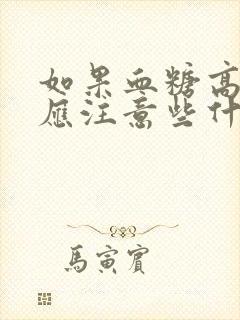 如果血糖高
应注意些什
馬寅賓